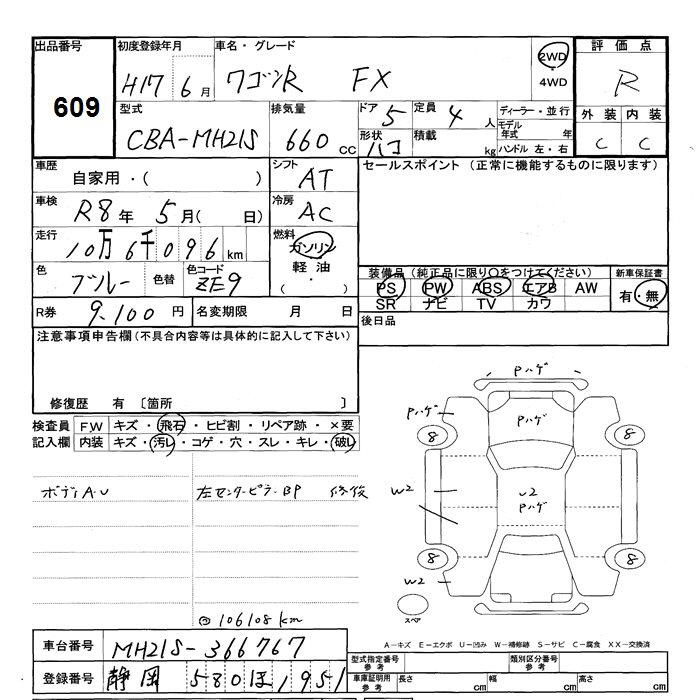 出品番号 609
初度登録年月 H17 6月
車名・グレード ワゴンR FX
2WD・4WD
評価点 R
外装 内装
C C
型式 CBA-MH21S
排気量 660 cc
ドア 5
定員 4人
形状 ハコ
積載 kg
ディーラー・並行
モデル年式 年
ハンドル 左・右
車歴 自家用・( )
シフト AT
セールスポイント (正常に機能するものに限ります)
車検 R8年 5月( 日)
冷房 AC
走行 10万6千096km
燃料 ガソリン・軽油・
色 ブルー 色替 色コード ZE9
装備品(純正品に限り○をつけてください)
PS PW ABS エアB AW
SR ナビ TV カワ
新車保証書 有・無
R券 9,100円
名変期限 月 日
後日品
注意事項申告欄(不具合内容等は具体的に記入して下さい)
修復歴 有 〔箇所 〕
検査員記入欄
FW キズ・飛石・ヒビ割・リペア跡・×要
内装 キズ・汚レ・コゲ・穴・スレ・キレ・破レ
ボディA.U
左センターピラーBP 修後
◎106108km
Pハゲ
Pハゲ
Pハゲ
8 8
W2
U2
Pハゲ
8 8
W2
スペア
A-キズ E-エクボ U-凹み W-補修跡 S-サビ C-腐食 XX-交換済
車台番号 MH21S-366767
型式指定番号 参考
類別区分番号 参考
登録番号 静岡 580 ほ 1951
車庫証明用 参考
長さ cm
幅 cm
高さ cm